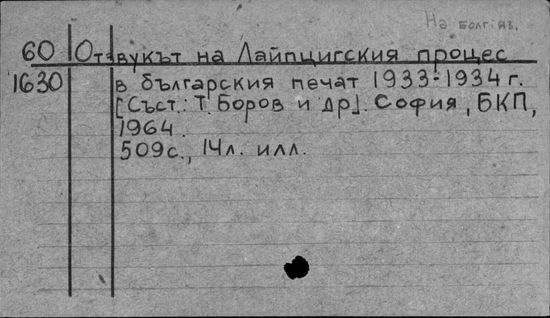 На болг. яз.
60 Отзвукът на Лайпцигския процес
1630 в българския печат 1933-1934 г.
[Съст.: Т. Боров и др]. София, БКП,
1964.
509с., 14л. илл.